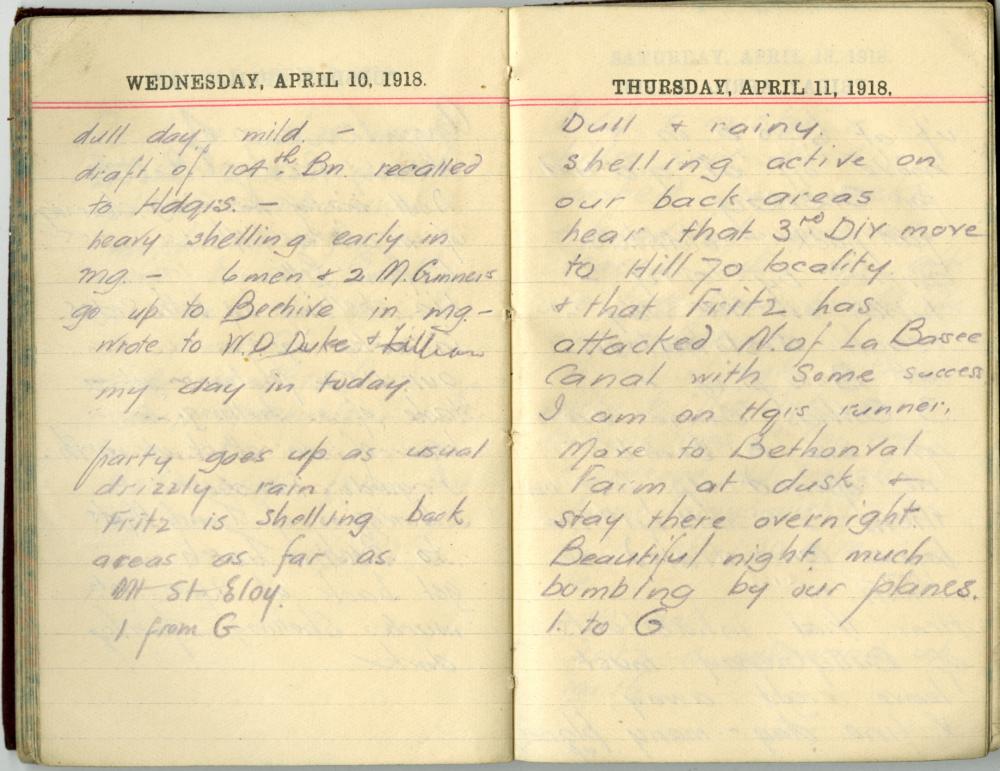 WEDNESDAY, APRIL 10, 1918.
dull day mild. –
draft of 104th. Bn recalled
to Hdqrs. –
heavy shelling early in
mg. – 6 men & 2 M. Gunners
go up to Beehive in mg. –
wrote to W.D. Duke & Lillian
my day in today.
party goes up as usual
drizzly rain.
Fritz is shelling back
areas as far as
Mt St Eloy.
1. from G
THURSDAY, APRIL 11, 1918.
Dull & rainy.
shelling active on
our back areas
hear that 3rd Div move
to Hill 70 locality.
& that Fritz has
attacked N. of La Basee
Canal with some success
I am on Hqrs runner.
Move to Bethonval
Farm at dusk &
stay there overnight
Beautiful night much
bombing by our planes.
1. to G